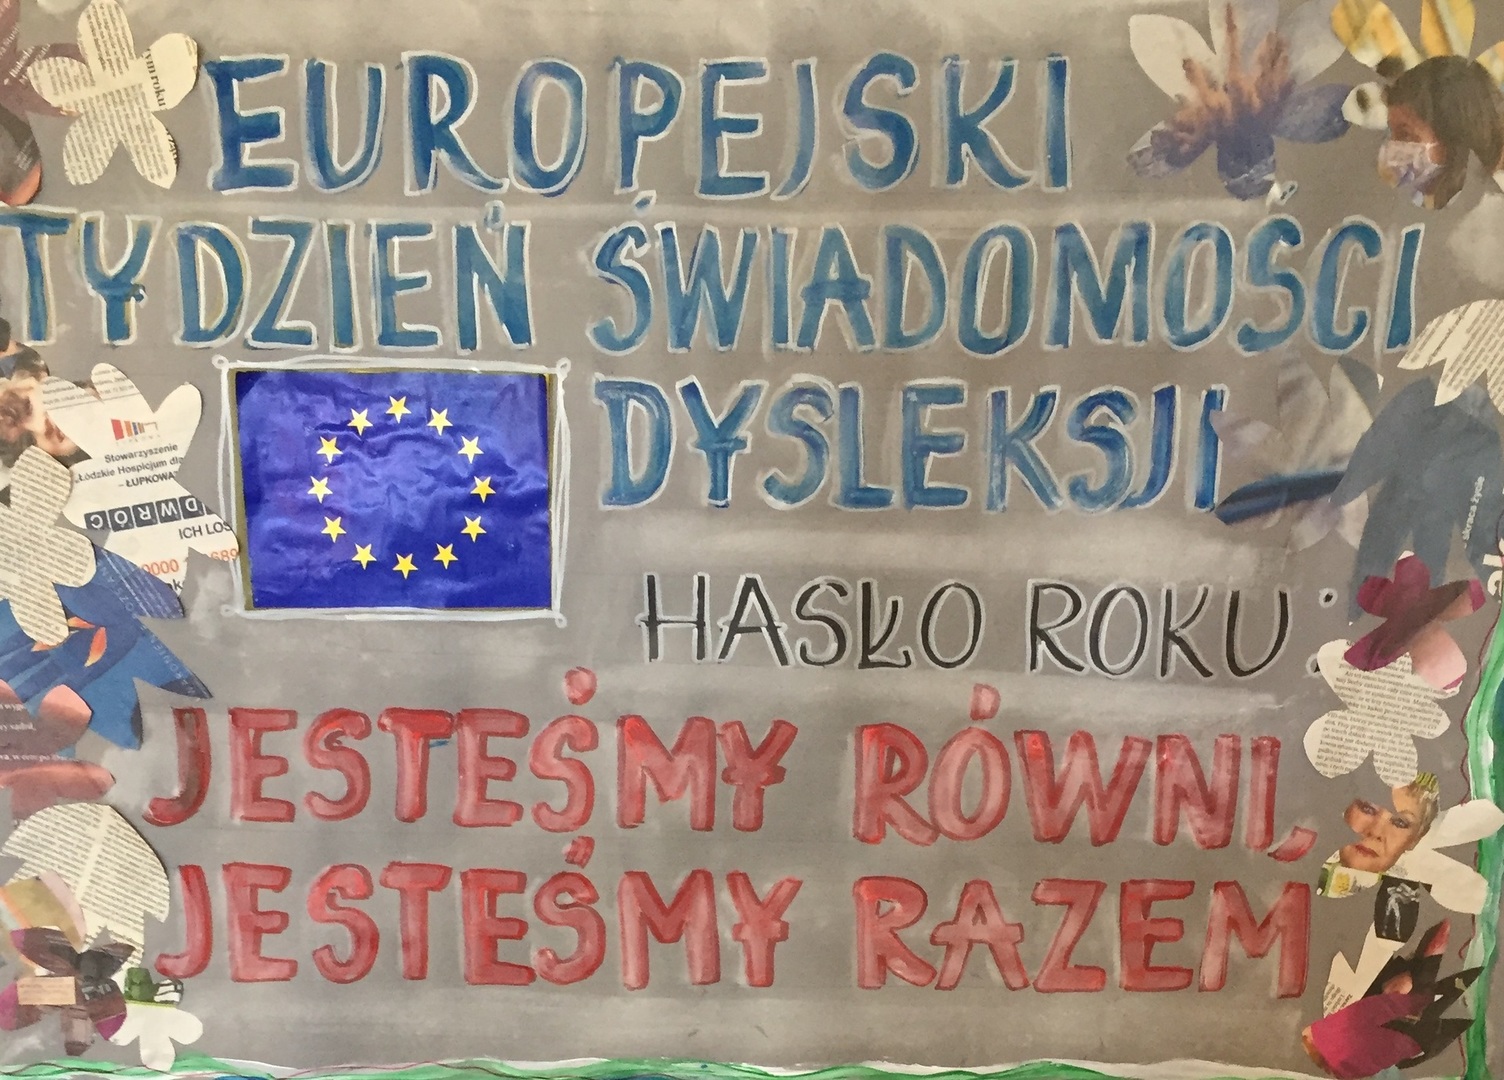 EUROPEJSKI
TYDZIEŃ ŚWIADOMOŚCI
DYSLEKSJI
HASŁO ROKU:
JESTEŚMY RÓWNI,
JESTEŚMY RAZEM
Stowarzyszenie
Łódzkie Hospicjum dla
– ŁUPKOWA
ICH LOS
skraca życie